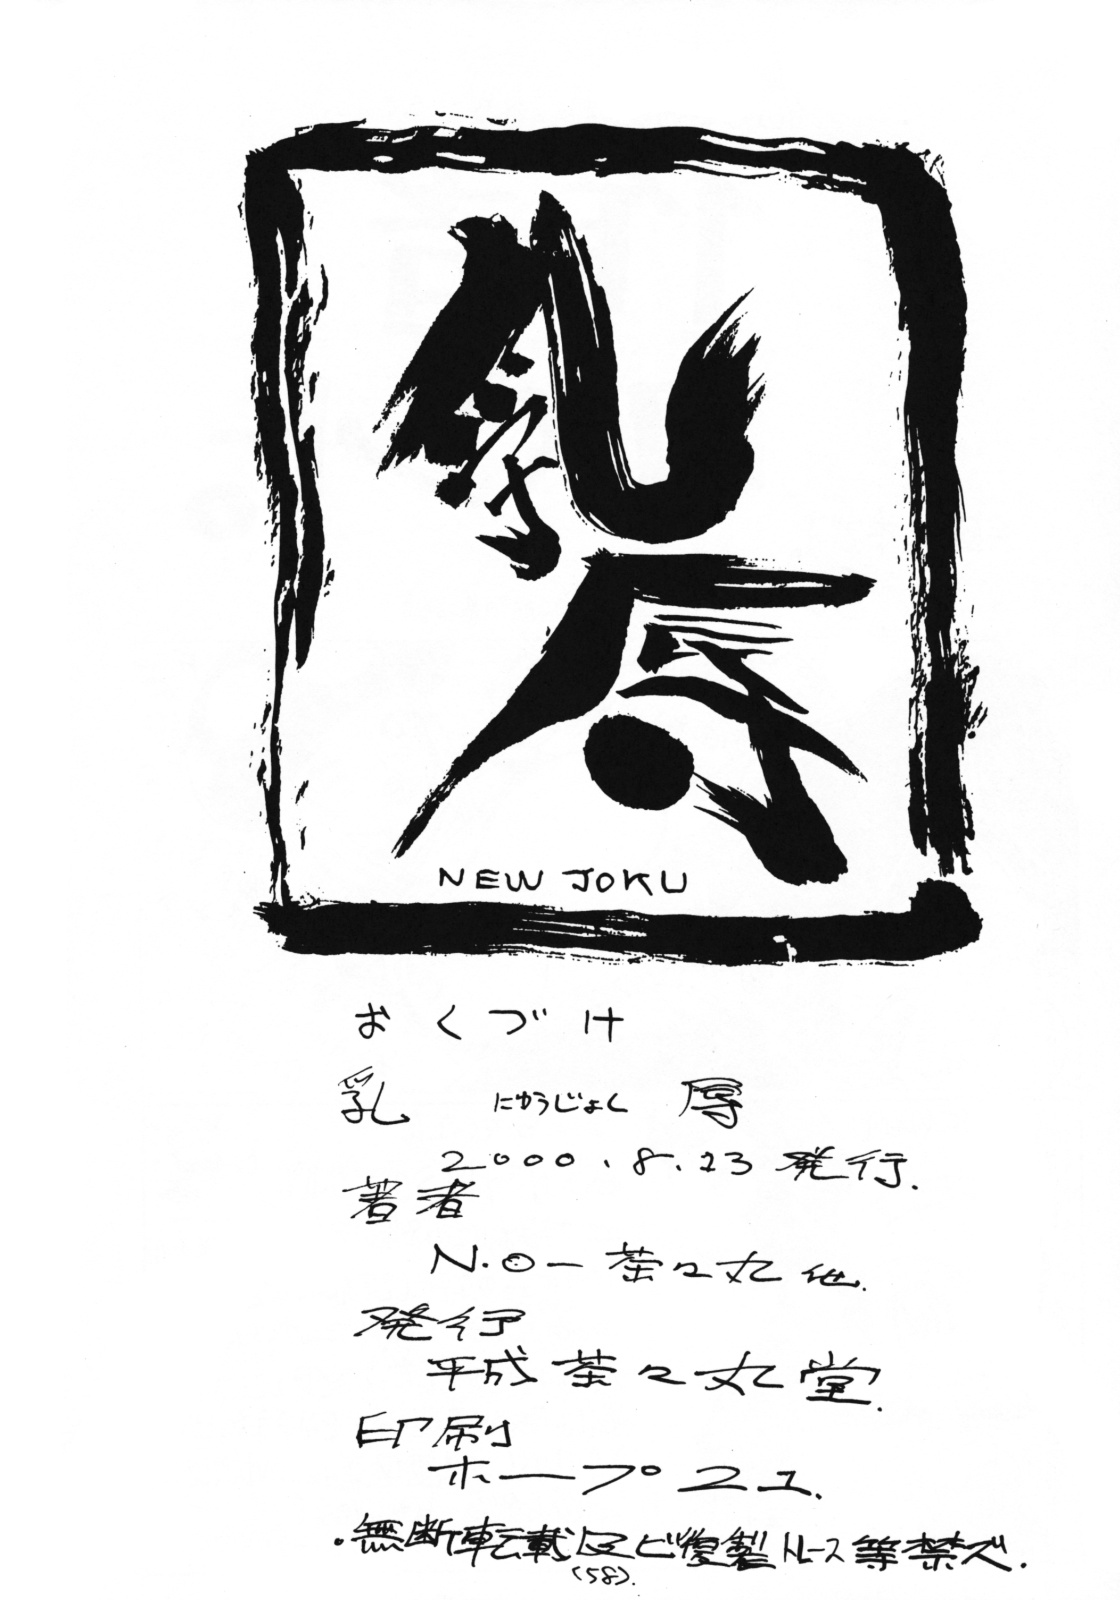 乳辱
NEW JOKU
おくづけ
乳 にゅうじょく 辱
2000.8.23 発行.
著者
N.O-茶々丸 他.
発行
平成茶々丸堂.
印刷
ホープ21.
・無断転載及ビ復製トレース等禁ズ.
(58).